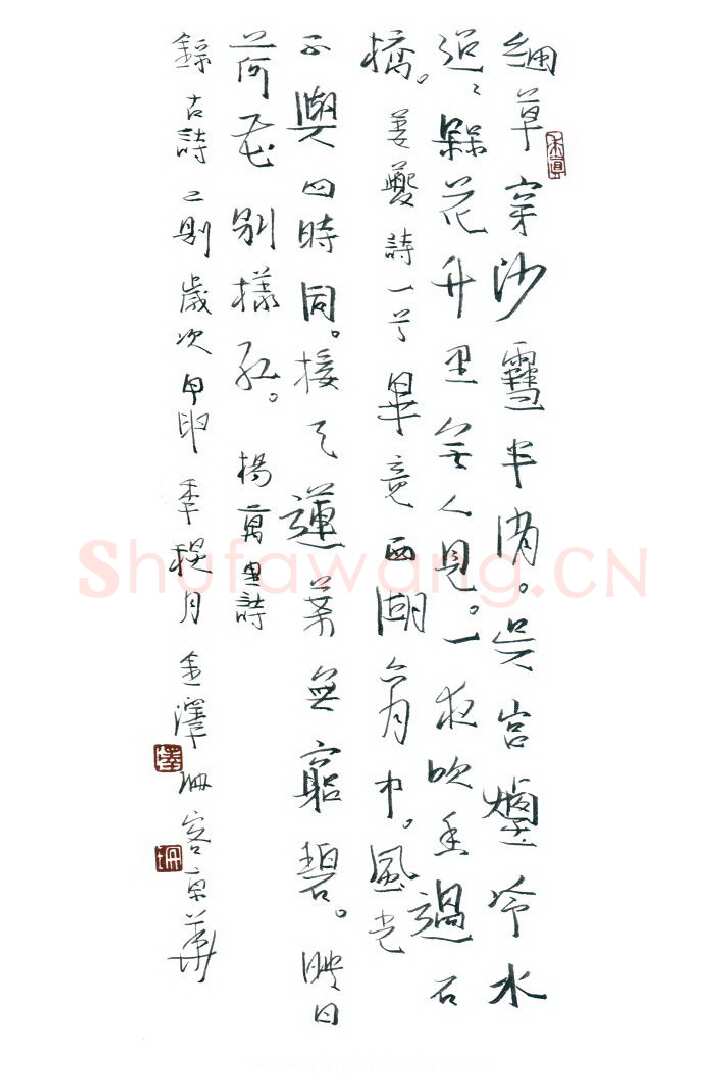 細草穿沙雪半消。吳宮煙冷水
迢〻槑花竹里無人見。一夜吹香過石
橋。姜夔詩一首 畢竟西湖六月中。風光
不與四時同。接天蓮葉無窮碧。映日
荷花別樣紅。楊萬里詩
錄古詩二則歲次甲申季月金澤珊客京華
澤
珊
Shufawang.CN